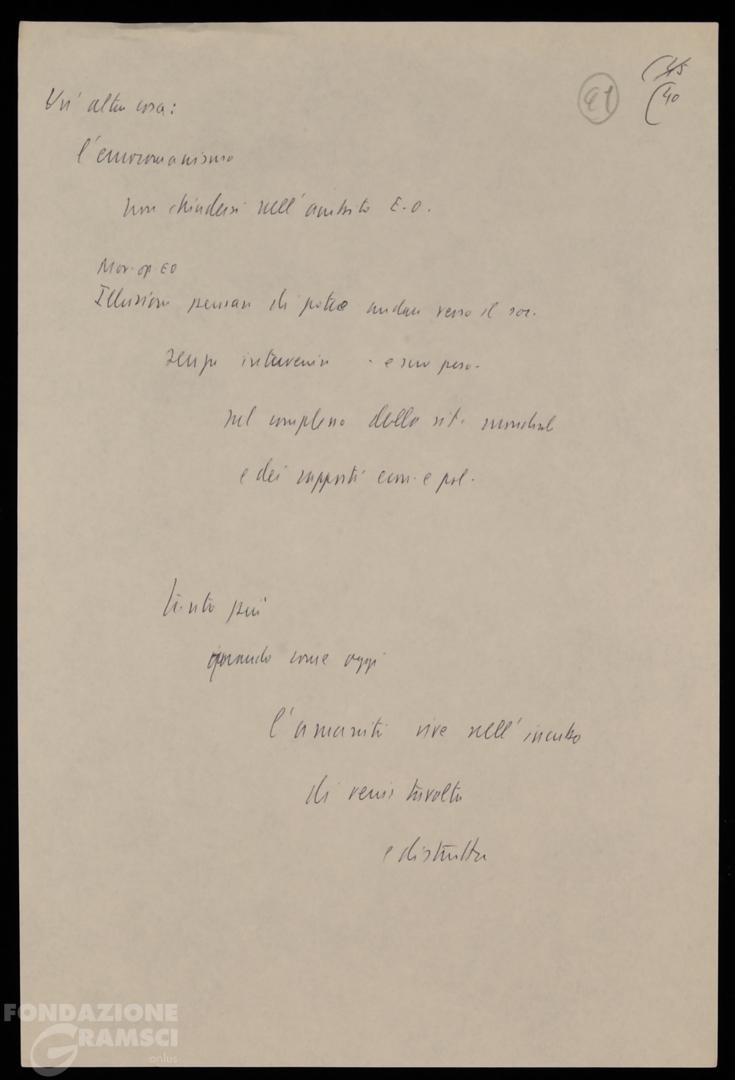 (45
91
(40
Un' altra cosa:
l'eurocomunismo
non chiudersi nell'ambito E.O.
Mov. op. EO
Illusione pensare di potere andare verso il soc.
senza intervenire - e suo peso -
sul complesso della sit. mondiale
e dei rapporti econ. e pol.
tanto più
quando come oggi
l'umanità vive nell'incubo
di venir travolta
e distrutta
FONDAZIONE
GRAMSCI
onlus